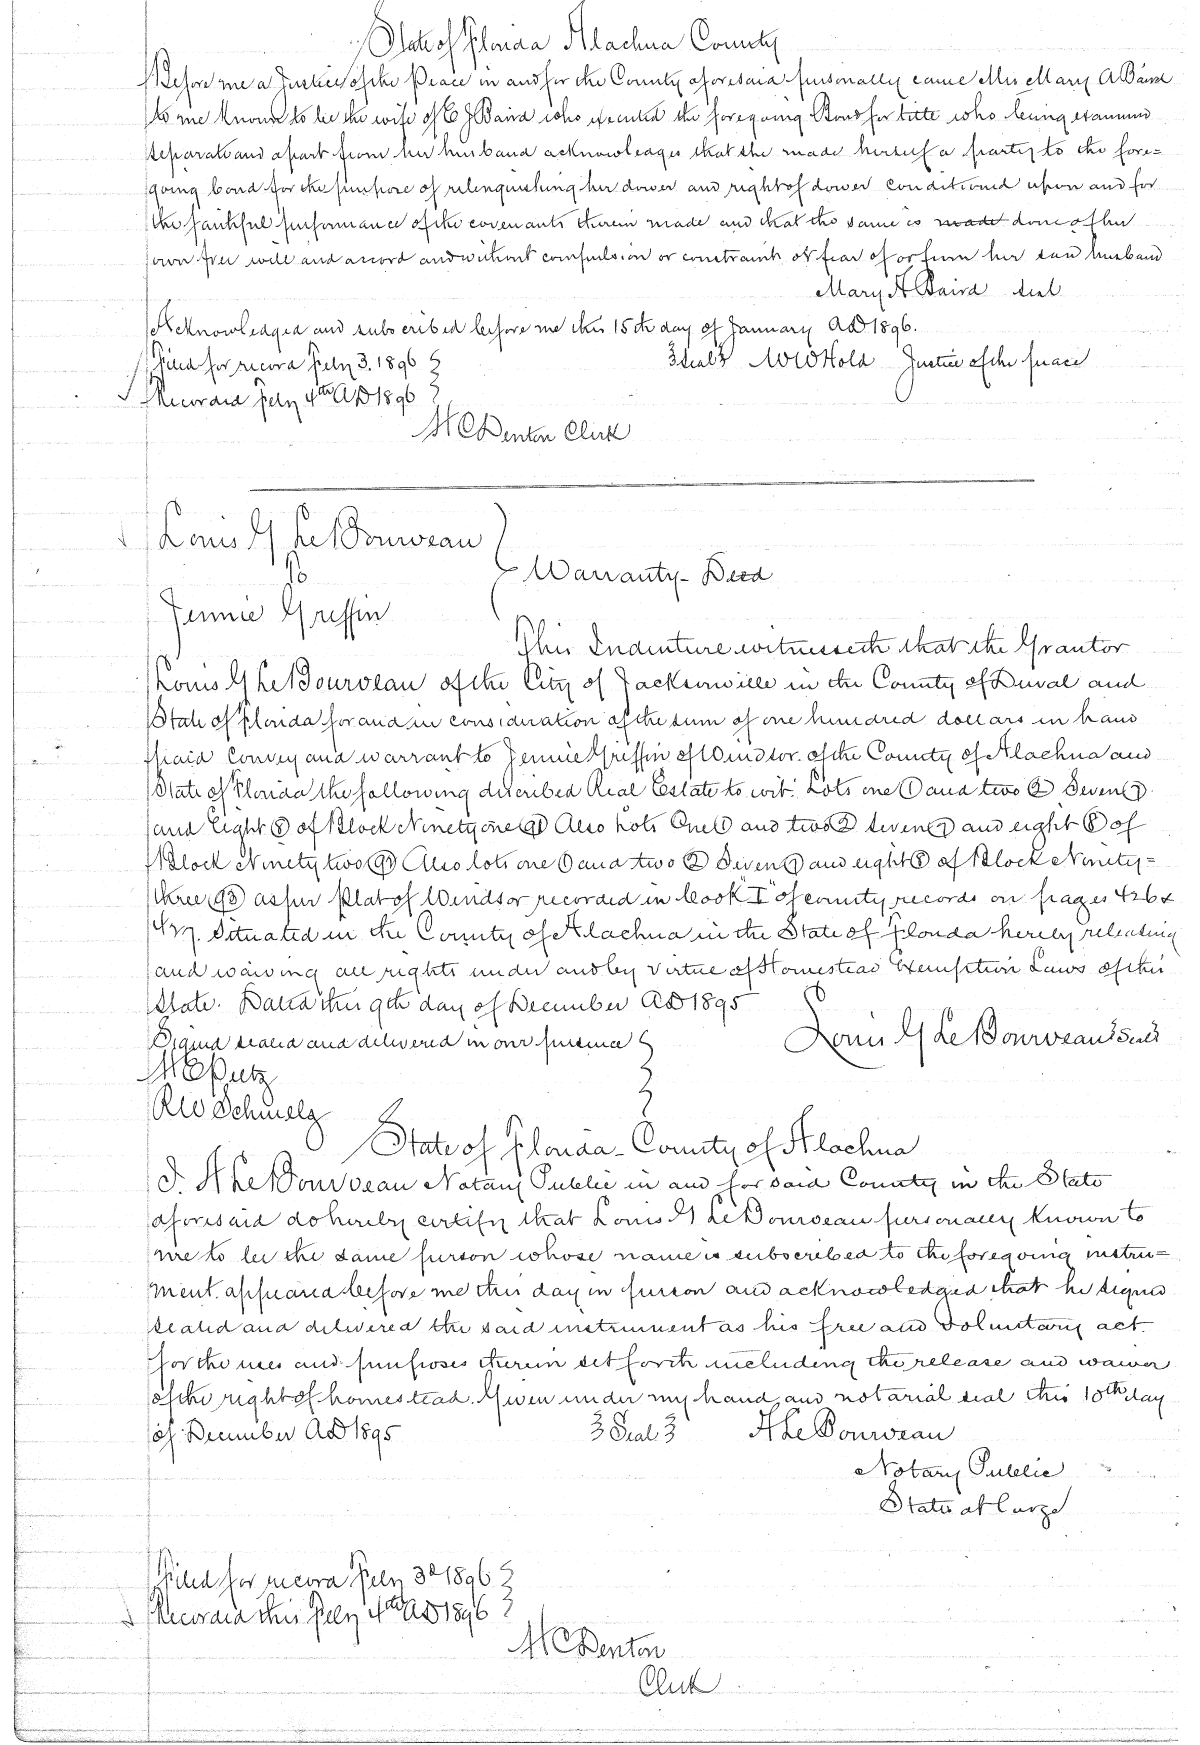 State of Florida Alachua County
Before me a Justice of the Peace in and for the County aforesaid personally came Mrs Mary A Baird
to me known to be the wife of E J Baird who executed the foregoing Bond for title who being examined
separate and apart from her husband acknowledges that she made herself a party to the fore=
going bond for the purpose of relinquishing her dower and right of dower conditioned upon and for
the faithful performance of the covenants therein made and that the same is made done of her
own free will and accord and without compulsion or constraint or fear of or from her said husband
Mary A Baird seal
Acknowledged and subscribed before me this 15th day of January AD 1896.
Filed for record Feby 3. 1896 Seal W W Hold Justice of the peace
Recorded Feby 4th AD 1896
H C Denton Clerk
Louis G Le Bourveau
To
Warranty - Deed
Jennie Griffin
This Indenture witnesseth that the Grantor
Louis G Le Bourveau of the City of Jacksonville in the County of Duval and
State of Florida for and in consideration of the sum of one hundred dollars in hand
paid convey and warrant to Jennie Griffin of Windsor. of the County of Alachua and
State of Florida the following discribed Real Estate to wit: Lots one (1) and two (2) Seven (7)
and Eight (8) of Block Ninety one (91) Also Lots One (1) and two (2) seven (7) and eight (8) of
Block Ninety two (92) Also lots one (1) and two (2) Seven (7) and eight (8) of Block Ninety=
three (93) as per Plat of Windsor recorded in book "I" of county records on pages 426 &
427. Situated in the County of Alachua in the State of Florida hereby releasing
and waiving all rights under and by virtue of Homestead Exemption Laws of this
State. Dated this 9th day of December AD 1895
Signed sealed and delivered in our presence Louis G Le Bourveau Seal
R W Schmelz
State of Florida - County of Alachua
I. A Le Bourveau Notary Public in and for said County in the State
aforesaid do hereby certify that Louis G Le Bourveau personally known to
me to be the same person whose name is subscribed to the foregoing instru=
ment. appeared before me this day in person and acknowledged that he signed
sealed and delivered the said instrument as his free and voluntary act.
for the uses and purposes therein set forth including the release and waiver
of the right of homestead. Given under my hand and notarial seal this 10th day
of December AD 1895 Seal A Le Bourveau
Notary Public
State at large
Filed for record Feby 3d 1896
Recorded this Feby 4th AD 1896
H C Denton
Clerk